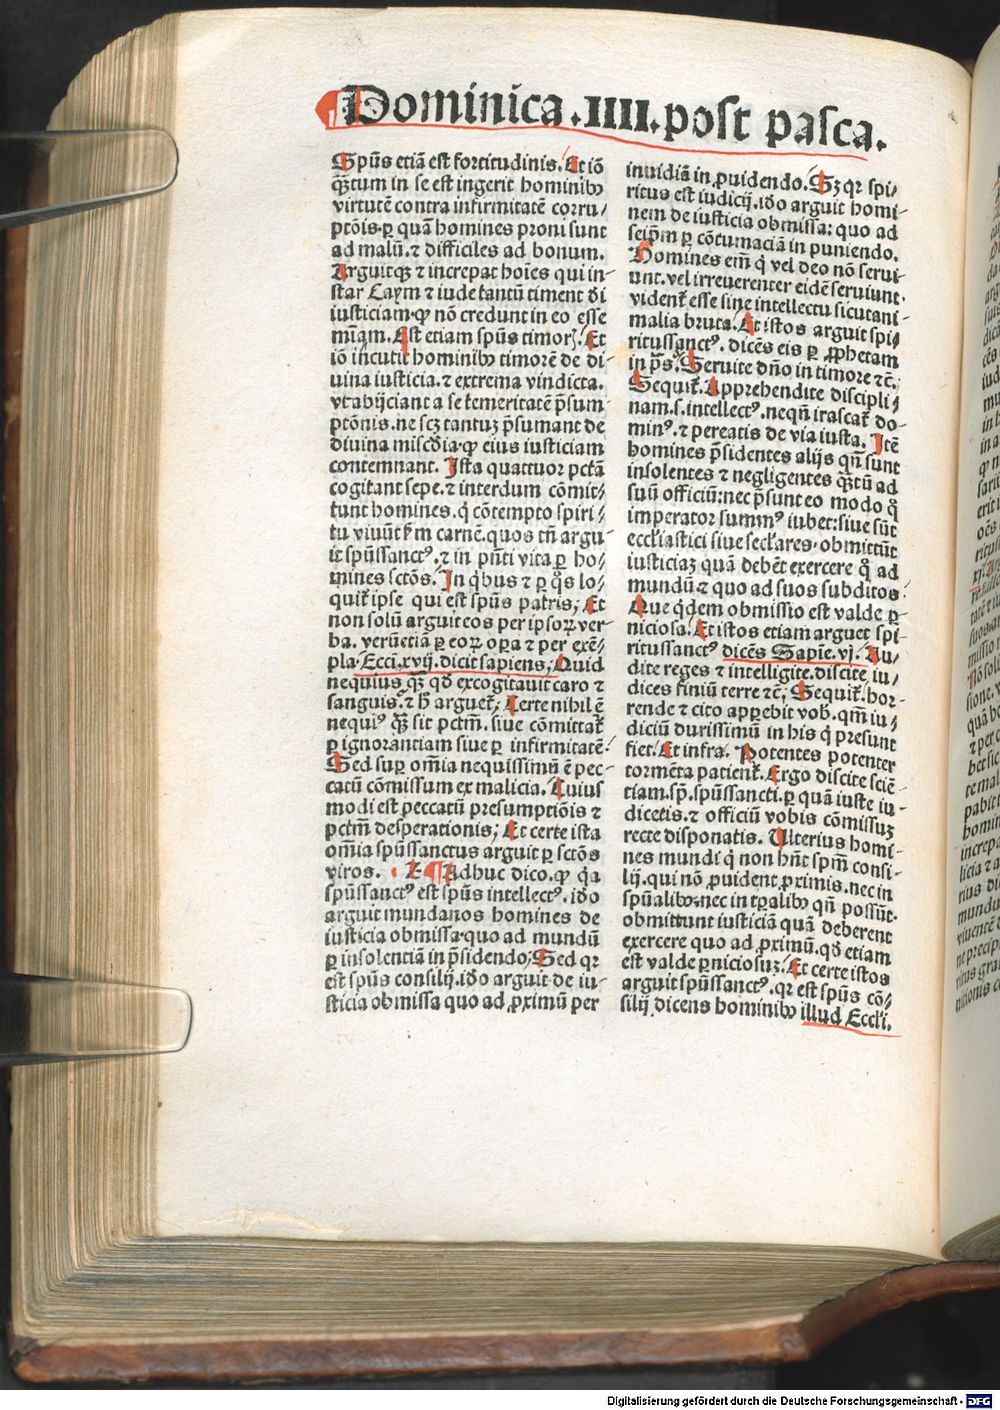 Dominica .IIII. post pasca.
Spūs etiā est fortitudinis. Et iō
q̄ꝫtum in se est ingerit hominibꝰ
virtutē contra infirmitatē corru⸗
ptōis. ꝑ quā homines proni sunt
ad malū. ⁊ difficiles ad bonum.
Arguitqꝫ ⁊ increpat hoīes qui in⸗
star Caym ⁊ iude tantū timent d̄i
iusticiam. ꝙ nō credunt in eo esse
mīam. Est etiam spūs timorꝭ. Et
iō īcutit hominibꝰ timorē de di⸗
uina iusticia. ⁊ extrema vindicta.
vt abijciant a se temeritatē p̄sum⸗
ptōnis. ne scꝫ tantuꝫ p̄sumant de
diuina misc̄dia. ꝙ eius iusticiam
contemnant. Ista quattuor pctā
cogitant sepe. ⁊ interdum cōmit⸗
tunt homines. q̇ cōtempto spiri⸗
tu viuūt km carnē. quos tn̄ argu⸗
it spūssanctꝰ. ⁊ in pn̄ti vita ꝑ ho⸗
mines sctōs. In q̇bus ⁊ ꝑ q̇s lo⸗
quit̄ ipse qui est spūs patris; Et
non solū arguit eos per ipsoꝝ ver
ba. verūetiā ꝑ eoꝝ oꝑa ⁊ per exē⸗
pla. Ecci. xvij. dicit sapiens; Quid
nequius qꝫ qd̄ excogitauit caro ⁊
sanguis. ⁊ h̄ arguet̄; Certe nihil ē
nequiꝰ q̄ꝫ sit pctm̄. siue cōmittat̄
ꝑ ignorantiam siue ꝑ infirmitatē.
Sed suꝑ om̄ia nequissimū ē pec⸗
catū cōmissum ex malicia. Cuius
modi est peccatū presumptiōis ⁊
pctm̄ desperationis; Et certe ista
om̄ia spūssanctus arguit ꝑ sctōs
viros. E ¶ Adhuc dico. ꝙ q̄a
spūssanctꝰ est spūs intellectꝰ. iđo
arguit mundanos homines de
iusticia obmissa. quo ad mundū
ꝑ insolentiā in p̄sidendo; Sed qꝛ
est spūs consilij. iđo arguit de iu⸗
sticia obmissa quo ad ꝓximū per
inuidiā in ꝓuidendo. Sꝫ qꝛ spi⸗
ritus est iudicij. iđo arguit homi⸗
nem de iusticia obmissa: quo ad
seip̄m ꝑ cōtumaciā in puniendo.
Homines em̄ q̇ vel deo nō serui
unt. vel irreuerenter eidē seruiunt.
vident̄ esse sine intellectu sicut ani⸗
malia bruta. Et istos arguit spi⸗
ritussanctꝰ. dicēs eis ꝑ ꝓphetam
in p̄s. Seruite dn̄o in timore ⁊c̄;
Sequit̄. Apprehendite discipli⸗
nam. s. intellectꝰ. neqn̄ irascat̄ do⸗
minꝰ. ⁊ pereatis de via iusta. Itē
homines p̄sidentes alijs qn̄ sunt
insolentes ⁊ negligentes q̄ꝫtū ad
suū officiū: nec p̄sunt eo modo q̊
imperator summꝰ iubet: siue sūt
eccl̄iastici siue secl̄ares. obmittūt
iusticiaꝫ quā debēt exercere q̊ ad
mundū ⁊ quo ad suos subditos.
Que q̇dem obmissio est valde ꝑ⸗
niciosa. Et istos etiam arguet spi⸗
ritussanctꝰ dicēs Sapīe. vj. Au⸗
dite reges ⁊ intelligite. discite iu⸗
dices finiū terre ⁊c̄; Sequit̄. hor⸗
rende ⁊ cito apꝑebit vob. qm̄ iu⸗
diciū durissimū in his q̇ presunt
fiet. Et infra. Potentes potenter
tormēta patient̄. Ergo discite sciē⸗
tiam. sp̄. spūssancti. ꝑ quā iuste iu⸗
dicetis. ⁊ officiū vobis cōmissuꝫ
recte disponatis. Ulterius homi⸗
nes mundi q̇ non hn̄t spm̄ consi⸗
lij. qui nō ꝓuident ꝓximis. nec in
spūalibꝰ. nec in tꝑalibꝰ qn̄ possūt.
obmittunt iusticiā quā deberent
exercere quo ad ꝓximū. qd̄ etiam
est valde ꝑniciosuꝫ. Et certe istos
arguit spūssanctꝰ. qꝛ est spūs cō⸗
silij dicens hominibꝰ illud Eccl̄i.
Digitalisierung gefördert durch die Deutsche Forschungsgemeinschaft - DFG